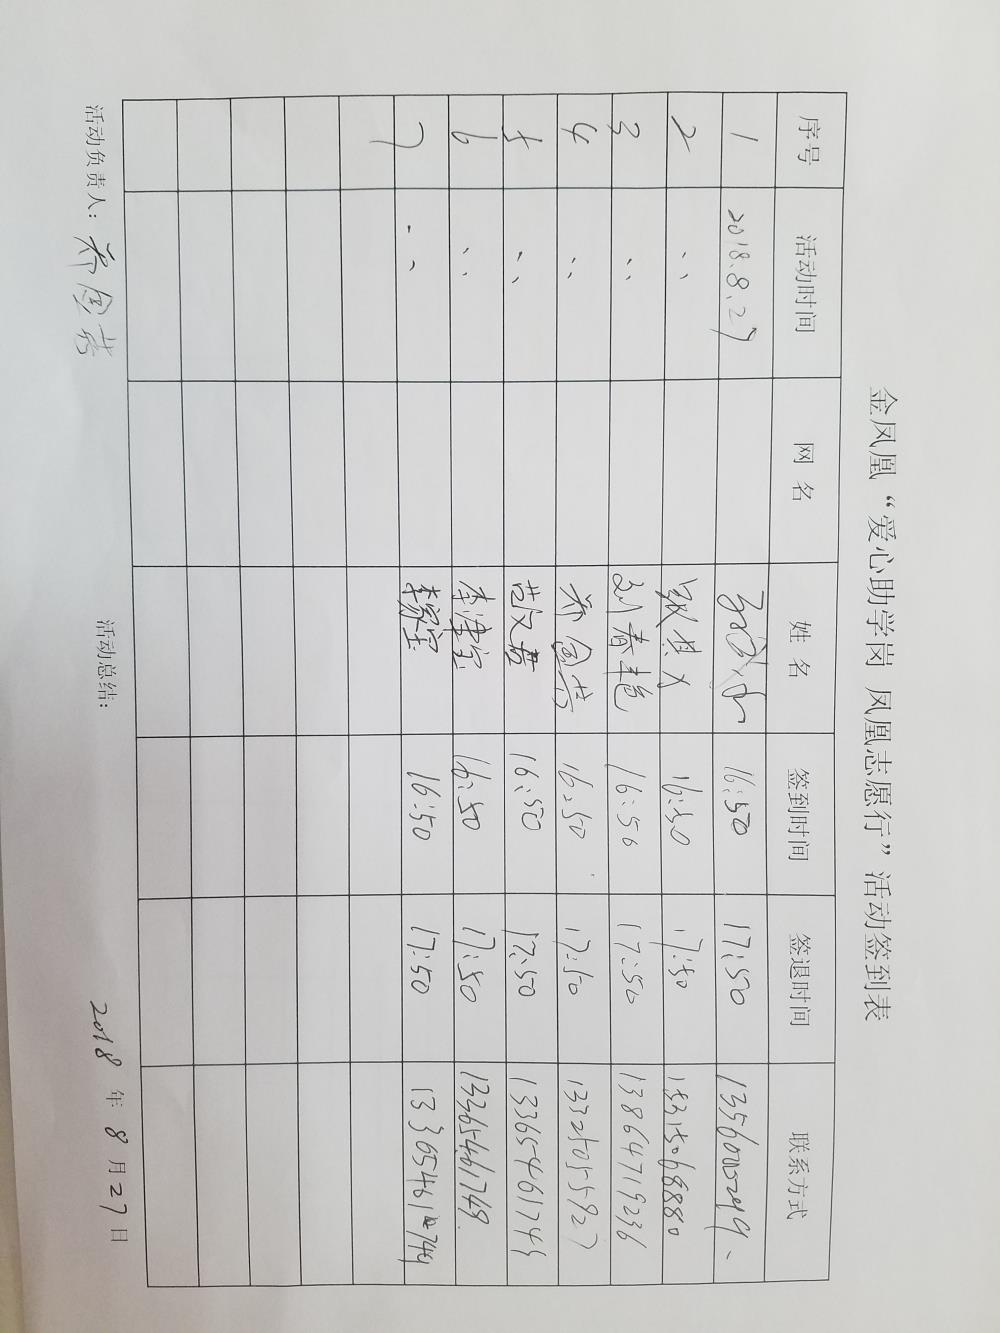 金凤凰“爱心助学岗 凤凰志愿行”活动签到表
序号 活动时间 网 名 姓 名 签到时间 签退时间 联系方式
1 2018.8.27 16:50 17:50
2 〃 16:50 17:50 15315068880
3 〃 刘春艳 16:50 17:50 13864719236
4 〃 16:50 17:50 13325055927
5 〃 范文君 16:50 17:50 13365461749
6 〃 李津宝 16:50 17:50 13365461749
7 〃 李家宝 16:50 17:50 13365461749
活动负责人: 活动总结: 2018 年 8 月 27 日